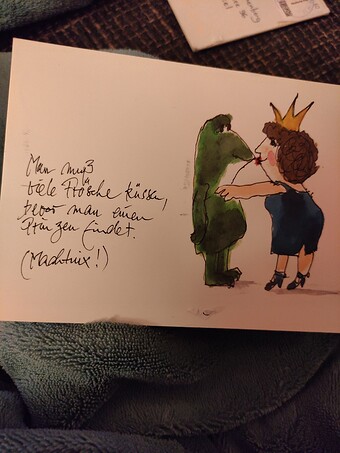 Man muß
viele Frösche küssen,
bevor man einen
Prinzen findet.
(Machtnix!)